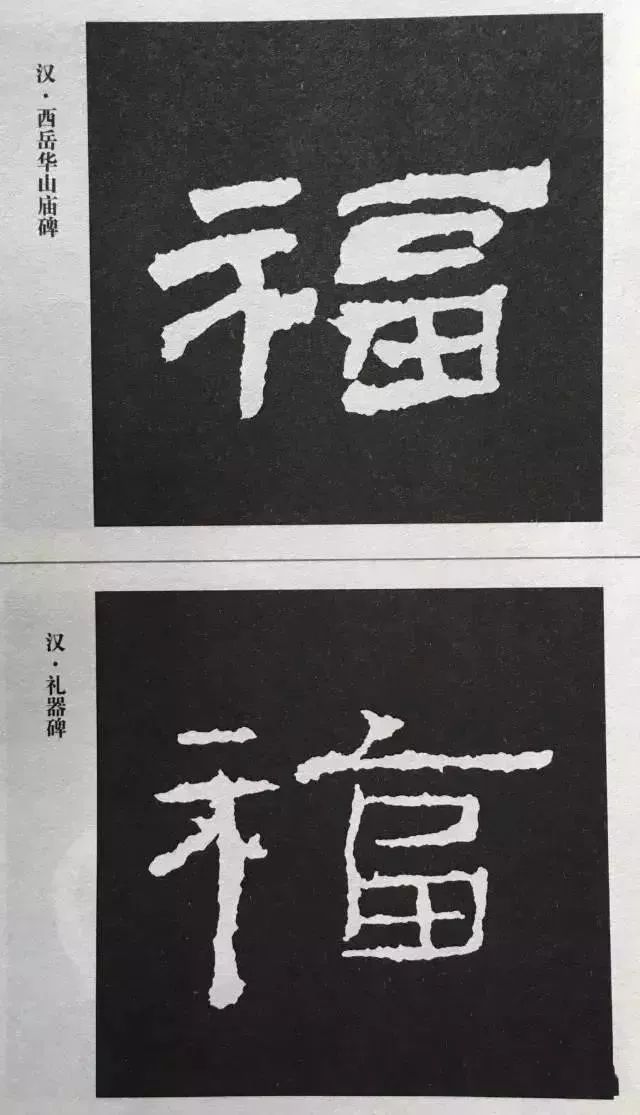 汉·西岳华山庙碑
福
汉·礼器碑
福